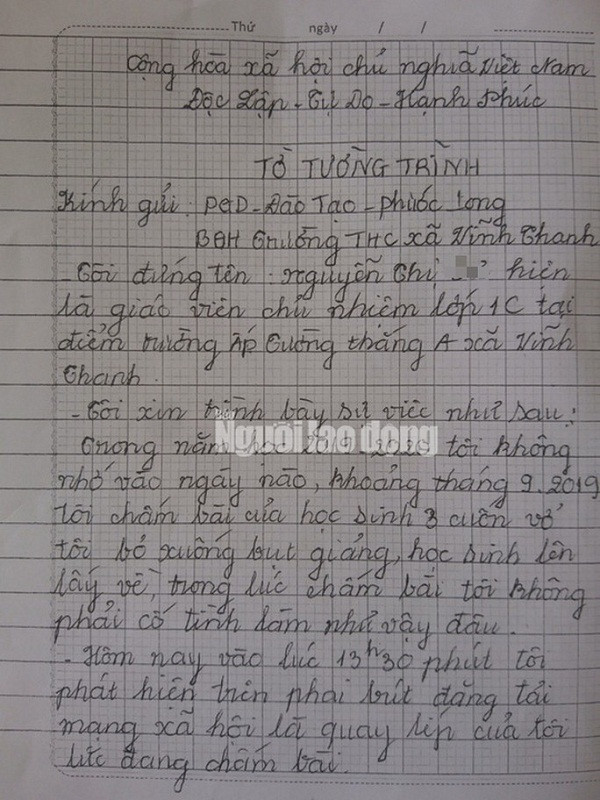 Thứ ngày / /
Cộng hòa xã hội chủ nghĩa Việt Nam
Độc Lập - Tự Do - Hạnh Phúc
TỜ TƯỜNG TRÌNH
Kính gửi: PGD - Đào Tạo - phước long
BGH trường THC xã Vĩnh Thanh
- Tôi đứng tên: nguyễn Thị hiện
là giáo viên chủ nhiệm lớp 1C tại
điểm trường ấp Tường thắng A xã Vĩnh
Thanh.
- Tôi xin trình bày sự việc như sau:
Người Lao động
Trong năm học 2019-2020 tôi không
nhớ vào ngày nào, khoảng tháng 9.2019
tôi chấm bài của học sinh 3 cuốn vở
tôi bỏ xuống bục giảng, học sinh lên
lấy về, trong lúc chấm bài tôi không
phải cố tình làm như vậy đâu.
- Hôm nay vào lúc 13h30 phút tôi
phát hiện trên phai bút đăng tải
mạng xã hội là quay lip của tôi
lúc đang chấm bài.